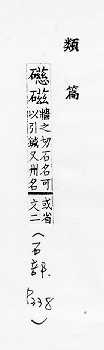 類篇
礠磁牆之切石名可
以引鍼又州名
或省
文二
(石部. P338)